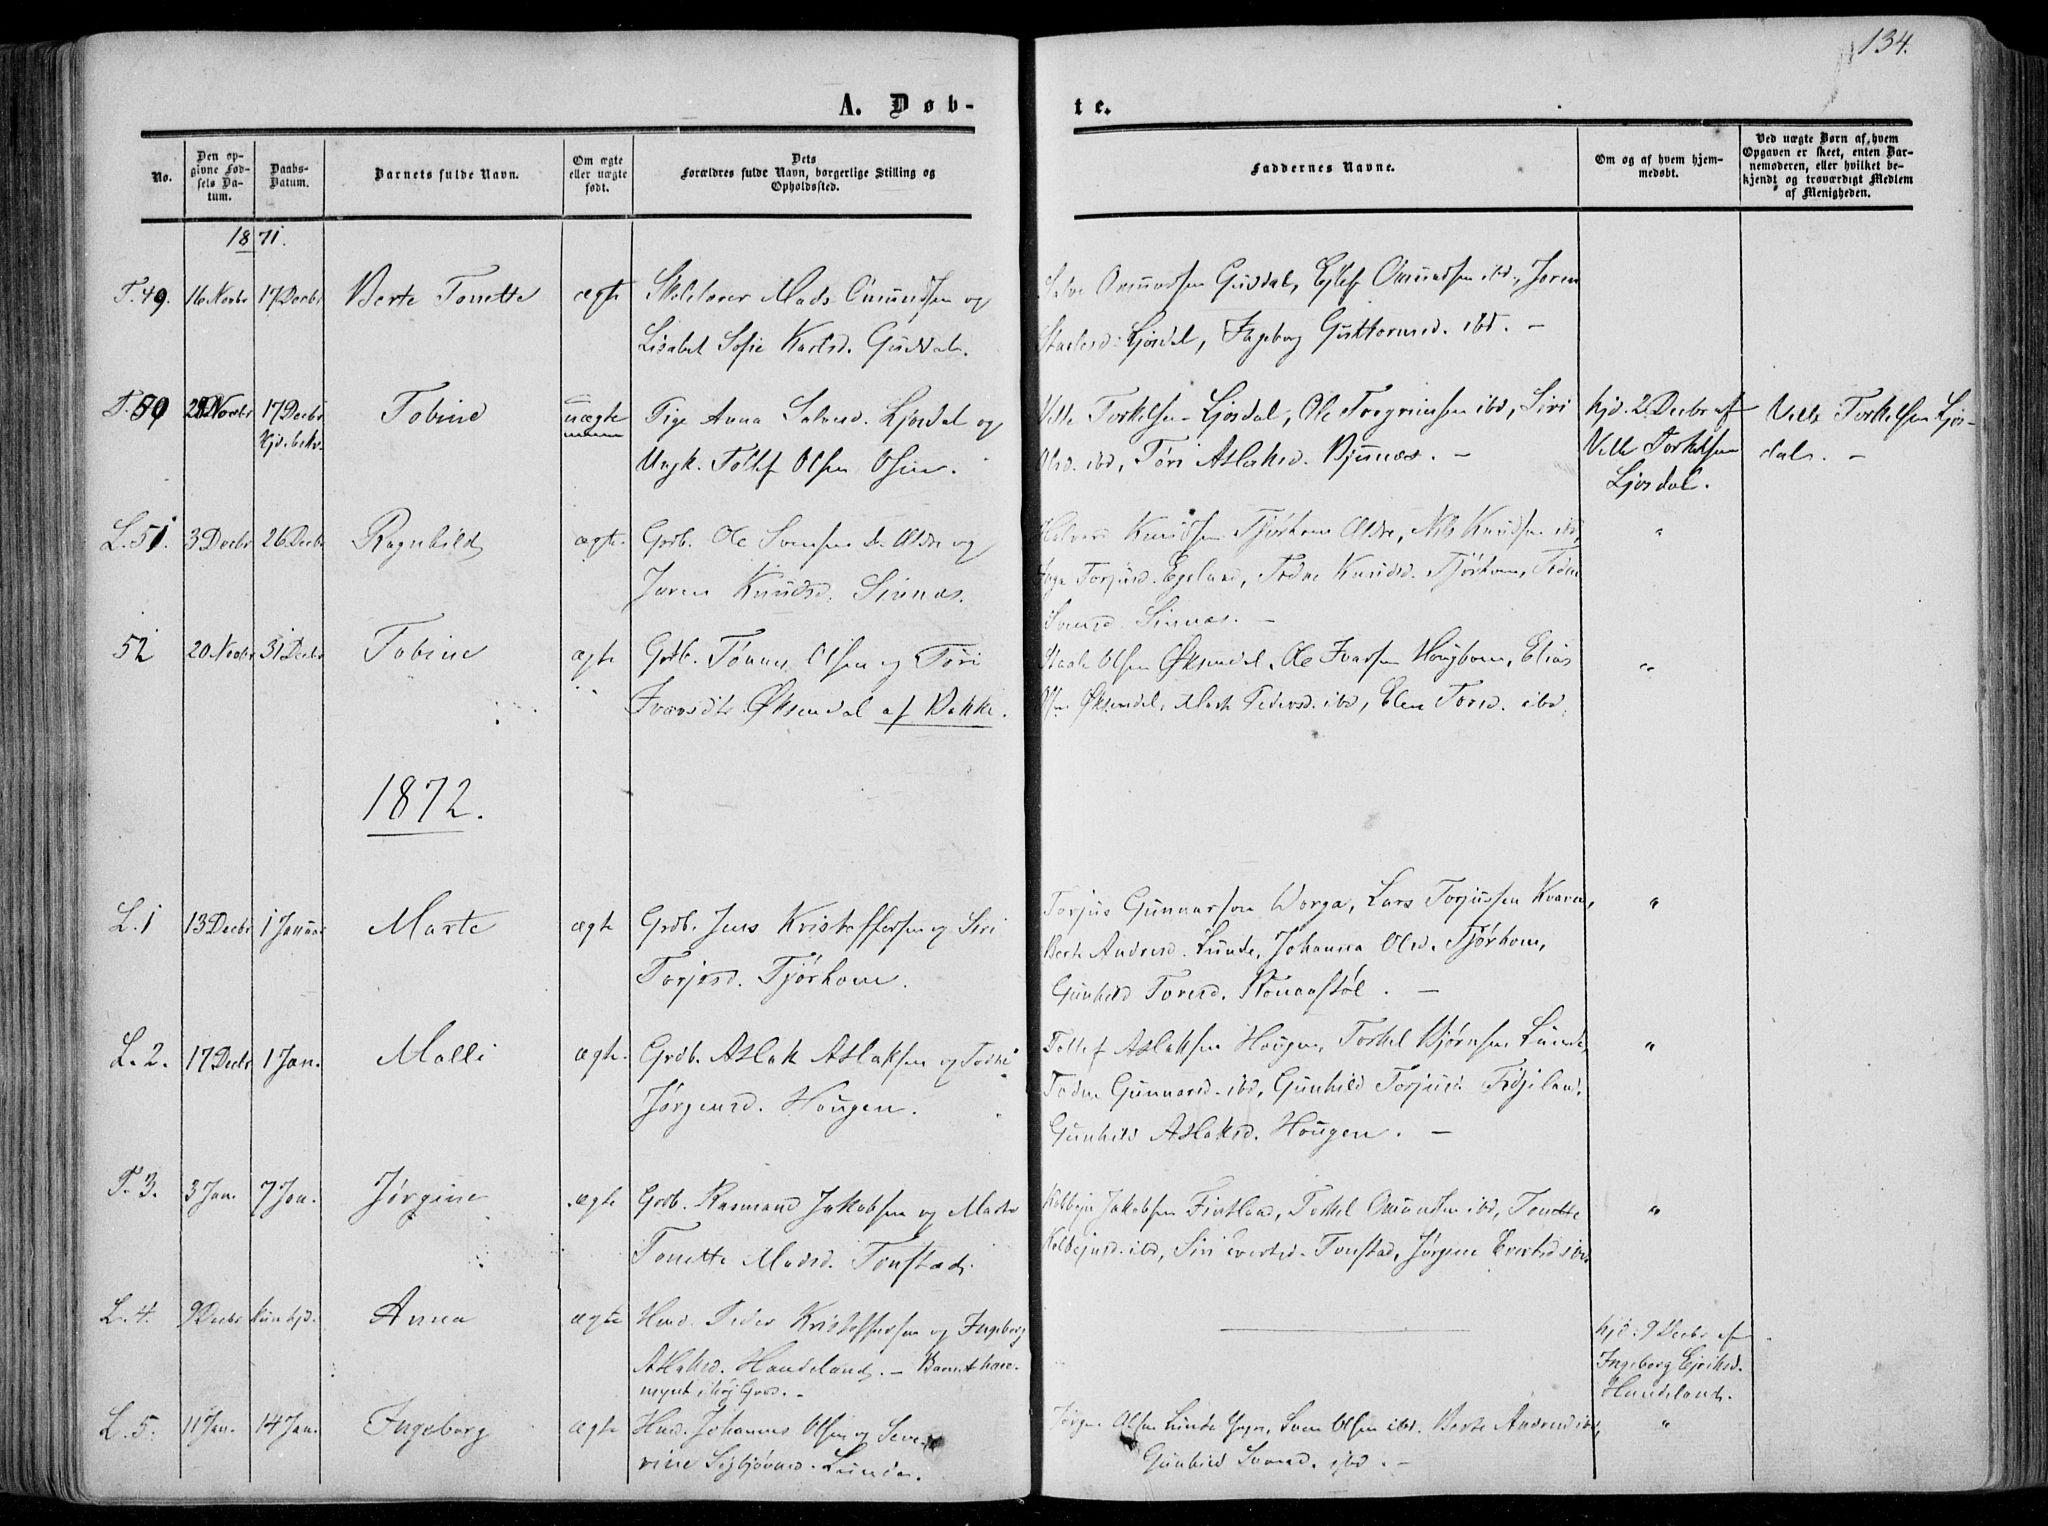 134.
A. Døb-
te.
No.
Den op-
givne Fød-
sels Da-
tum.
Daabs-
Datum.
Barnets fulde Navn.
Om ægte
eller uægte
født.
Dets
Forældres fulde Navn, borgerlige Stilling og
Opholdssted.
Faddernes Navne.
Om og af hvem hjem-
medøbt.
Ved uægte Børn af hvem
Opgaven er skeet, enten Bar-
nemoderen, eller hvilket be-
kjendt og troværdigt Medlem
af Menigheden.
1871.
T. 49. 16 Novbr 17 Decbr Berte Tonette ægte Skolelærer Mads Omundsen og
Lisabet Sofie Karlsd. Gusdal.
Salve Omundsen Gusdal, Ejlef Omundsen ibd, Joren
Ljosdal, Ingeborg Guttormsd. ibd. –
T. 50 Novbr 17 Decbr Tobine uægte Pige Anna Salvesd. Ljosdal og
Hjd. bekr.
Ungk. Tollef Olsen Osen.
Velle Torkelsen Ljosdal, Ole Torgrimsen ibd, Siri
Olsd. ibd, Tøri Aslaksd. Bjunæs. –
Hjd. 2 Decbr af
Velle Torkelsen
Ljosdal.
Velle Torkelsen Ljos-
dal. –
L. 51. 3 Decbr 26 Decbr Ragnhild ægte. Grdb. Ole Svensen og
Joren Knudsd. Sinnæs.
Halvor Knudsen Tjørhom Nils Knudsen ibd,
Inga Torjusd. Egeland, Todne Knudsd. Tjørhom,
Svensd. Sinnæs. –
"
52 20 Novbr 31 Decbr Tobine ægte Grdb. Tønnes Olsen og Tøri
Ivarsdtr Øksendal af Bakke.
Olsen Øksendal, Ole Ivarsen Hougbom, Elias
Øksendal, Pedersd. ibd, Elen Torsd. ibd.
"
1872.
L. 1 13 Decbr 1 Januar Marte ægte Grdb. Jens Kristoffersen og Siri
Torjesd. Tjørhom.
Torjus Gunnarson Worga, Lars Torjussen Kvæven,
Berte Andresd. Lunde, Johanna Olsd. Tjørhom,
Gunhild Toresd. –
"
L. 2. 17 Decbr 1 Jan. Malli ægte. Grdb. Aslak Aslaksen og Todne
Jørgensd. Hougen.
Tollef Aslaksen Hougen, Torkel Bjørnsen Lunde,
Todne Gunnarsd. ibd, Gunhild Torjusd. Fidjeland,
Gunhild Aslaksd. Hougen. –
"
T. 3. 3 Jan. 7 Jan. Jørgine ægte Grdb. Rasmund Jakobsen og Marte
Tonette Madsd. Tonstad.
Kolbejn Jakobsen Fintland, Torkel Omundsen ibd, Tonette
Kolbejnsd. ibd, Siri Evertsd. Tonstad, Jørgine Evertsd ibd.
"
L. 4. 9 Decbr kun hjd. Anna ægte Husd. Peder Kristoffersen og Ingeborg
Aslaksd. Haudeland. –
Hjd. 9 Decbr af
Ingeborg Ejriksd.
Haudeland.
L. 5. 11 Jan. 14 Jan. Ingeborg ægte Husd. Johannes Olsen og Seve-
rine Sigbjørnsd. Lunde.
Jørgen Olsen Lunde Sven Olsen ibd. Berte Andresd ibd,
Gunhild Svensd. ibd. –
"